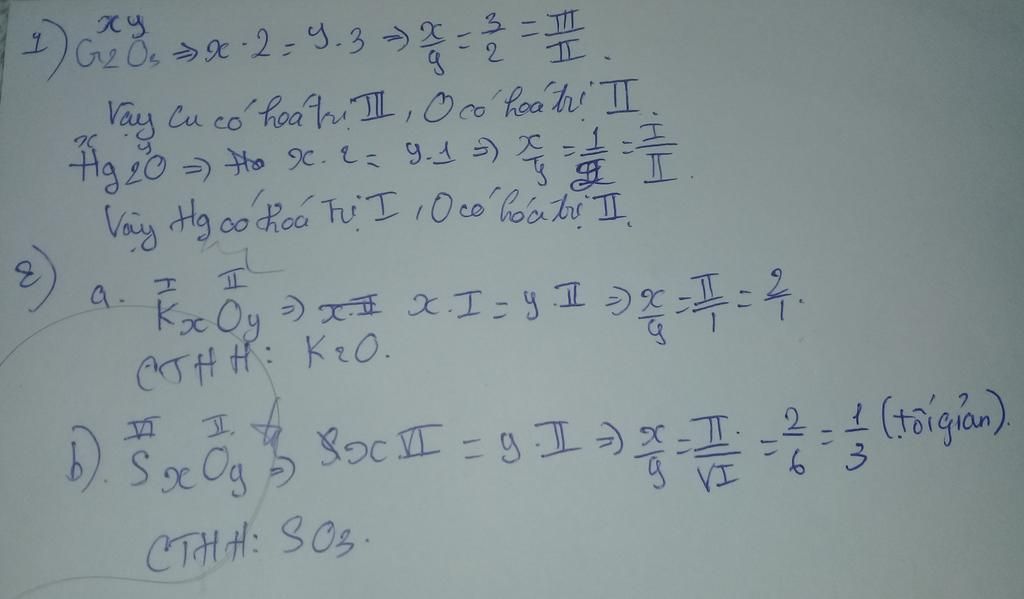 x y
1) Cr2O3 => x . 2 = y . 3 => x/y = 3/2 = III/II.
Vậy Cu có hoá trị III, O có hoá trị II.
x y
Hg2O => x . 2 = y . 1 => x/y = 1/2 = I/II.
Vậy Hg có hoá trị I, O có hóa trị II.
2)
I II
a. KxOy => x . I = y . II => x/y = II/1 = 2/1.
CTHH: K2O.
VI II
b). SxOy => x VI = y . II => x/y = II/VI = 2/6 = 1/3 (tối giản).
CTHH: SO3.